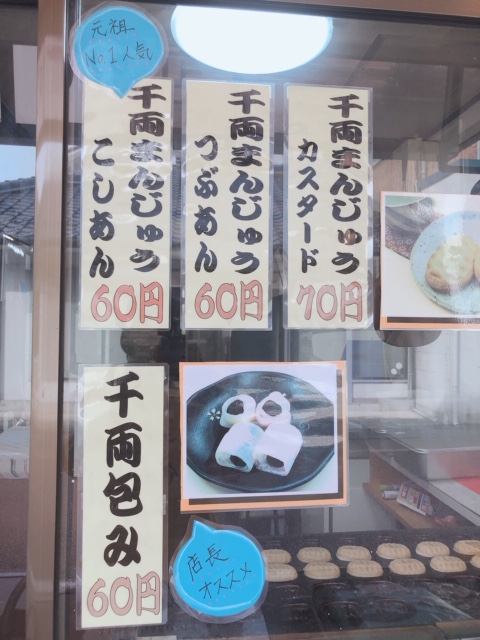 元祖
No.1人気
千両まんじゅう
こしあん
60円
千両まんじゅう
つぶあん
60円
千両まんじゅう
カスタード
70円
千両包み
60円
店長
オススメ